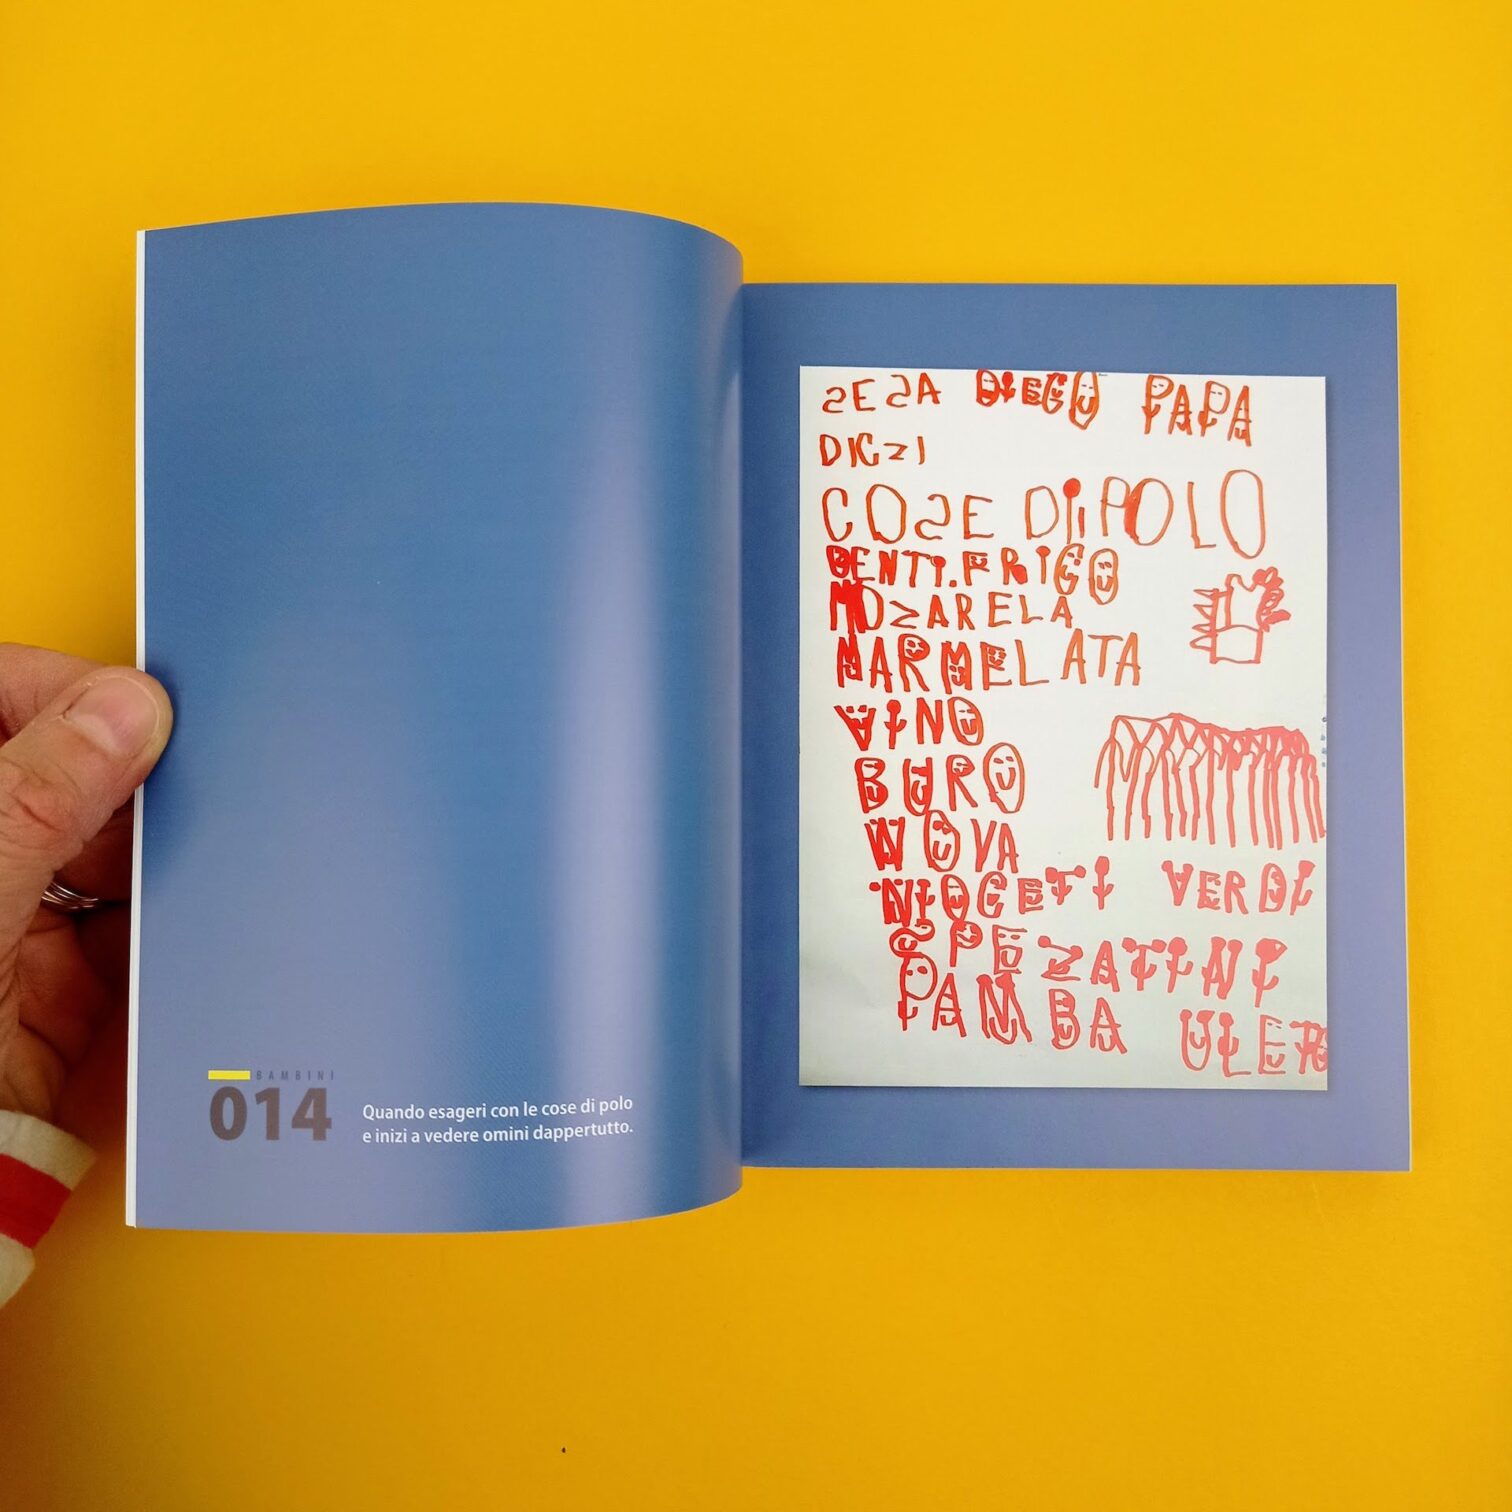 BAMBINI
014
Quando esageri con le cose di polo
e inizi a vedere omini dappertutto.
SESA DIEGO PAPA
DICZI
COSE DI POLO
DENTI.FRICO
MOZARELA
MARMELATA
VINO
BURO
WOVA
NIOCETI VERDI
SPEZATINI
PAMBA ULETO